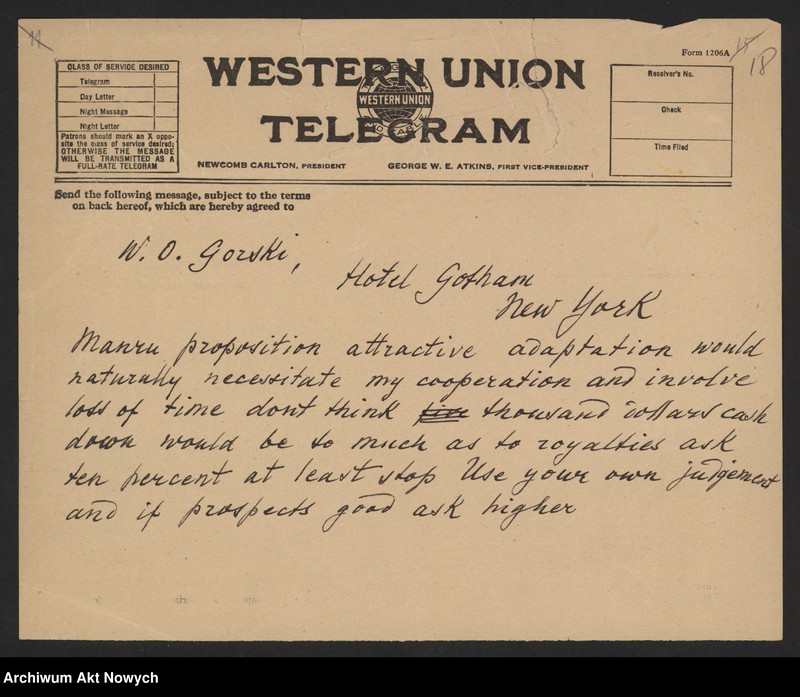 11
Form 1206A
15
18
CLASS OF SERVICE DESIRED
Telegram
Day Letter
Night Message
Night Letter
Patrons should mark an X oppo-
site the class of service desired;
OTHERWISE THE MESSAGE
WILL BE TRANSMITTED AS A
FULL-RATE TELEGRAM
WESTERN UNION
WESTERN UNION
TELEGRAM
NEWCOMB CARLTON, PRESIDENT
GEORGE W. E. ATKINS, FIRST VICE-PRESIDENT
Receiver's No.
Check
Time Filed
Send the following message, subject to the terms
on back hereof, which are hereby agreed to
W. O. Gorski,
Hotel Gotham
New York
Manru proposition attractive adaptation would
naturally necessitate my cooperation and involve
loss of time dont think thousand dollars cash
down would be to much as to royalties ask
ten percent at least stop Use your own judgement
and if prospects good ask higher
Archiwum Akt Nowych